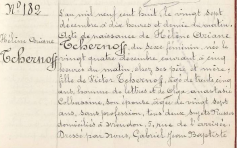 N° 182
Hélène Oxiane
Tchernoff
L'an mil neuf cent huit, le vingt sept
décembre à dix heures et demie du matin.
Acte de naissance de Hélène Oxiane
Tchernoff du sexe féminin née le
vingt quatre décembre courant à cinq
heures du matin, chez ses père et mère,
fille de Victor Tchernoff, âgé de trente cinq
ans, homme de lettres et de Olga, Anastasie
Colbassine, son épouse, âgée de vingt sept
ans, sans profession, tous deux Sujets Russes
domiciliés à
Dressé par Nous, Gabriel Jean Baptiste